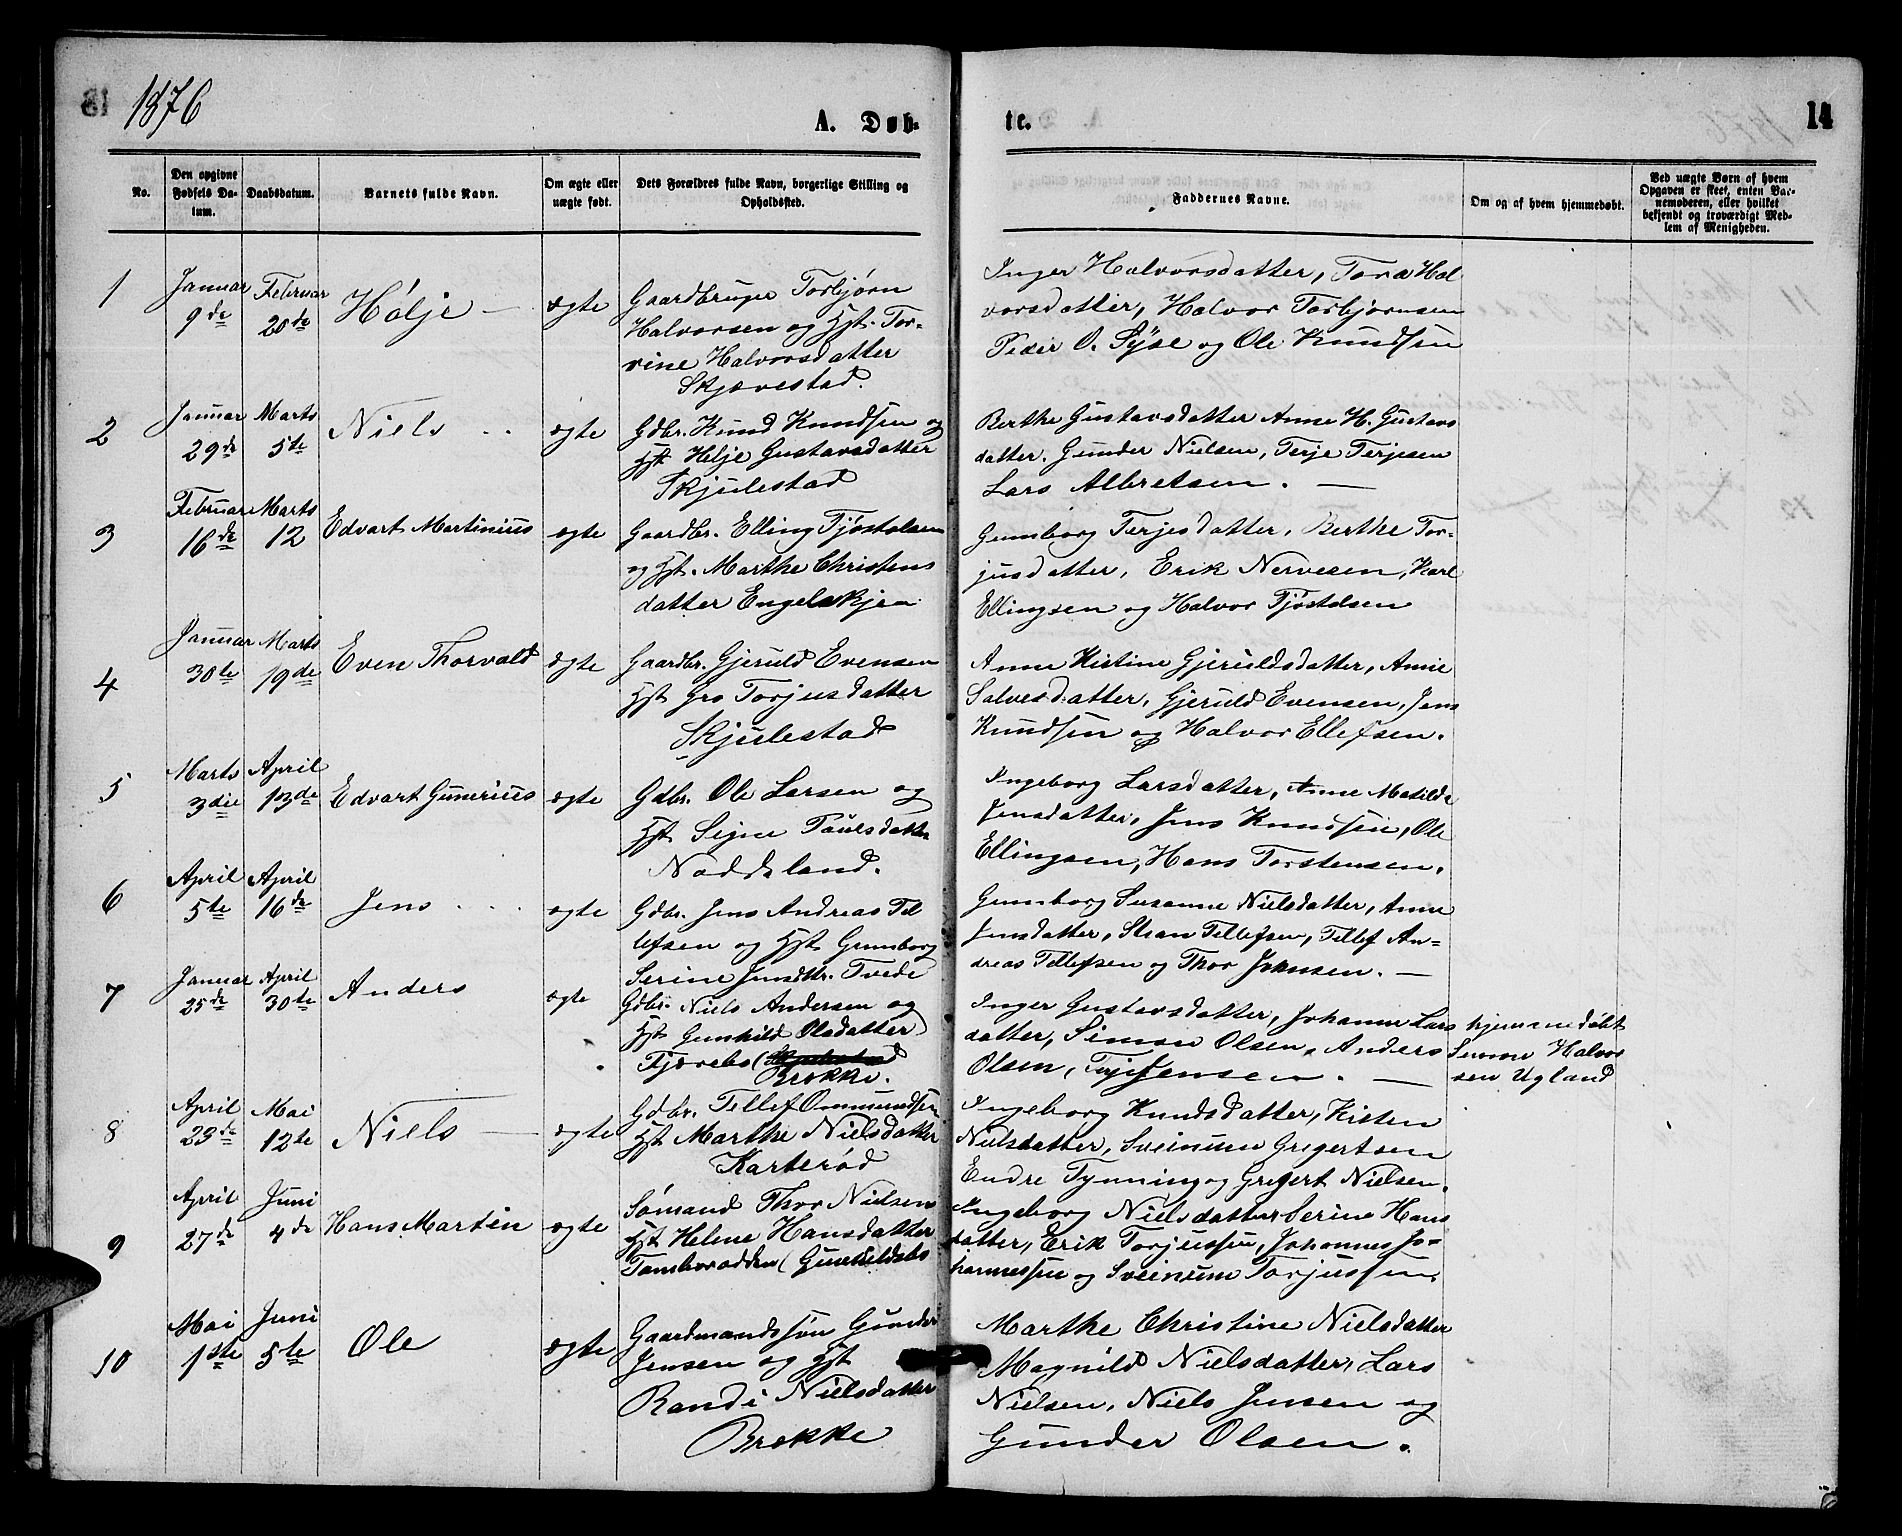 1876
A. Døb-
te.
14
No.
Den opgivne Fødsels Da-
tum.
Daabsdatum.
Barnets fulde Navn.
Om ægte eller
uægte født.
Dets Forældres fulde Navn, borgerlige Stilling og
Opholdssted.
Faddernes Navne.
Om og af hvem hjemmedøbt.
Ved uægte Børn af hvem
Opgaven er skeet, enten Bar-
nemoderen, eller hvilket
bekjendt og troværdigt Med-
lem af Menigheden.
1
Januar
9de
Februar
20de
Hölje
ægte
Gaardbruger Torbjørn
Halvorsen og Hst. Tor-
vine Halvorsdatter
Skjævestad.
Inger Halvorsdatter, Tora Hal
vorsdatter, Halvor Torbjørnsen
Peder O. og Ole Knudsen
2
Januar
29de
Marts
5te
Niels
ægte
Gdbr. Knud Knudsen og
Hst Helje Gustavsdatter
Skjulestad
Berthe Gustavsdatter Anne H. Gustavs
datter. Gunder Nielsen, Terje Terjesen
Lars Albretsen.
3
Februar
16de
Marts
12
Edvart Martinius
ægte
Gaardbr. Elling Tjöstolsen
og Hst. Marthe Christens
datter Engelskjøn
Gunborg Terjesdatter, Berthe Tor-
jusdatter, Erik Nervesen, Karl
Ellingsen og Halvor Tjöstolsen
4
Januar
30te
Marts
19de
Even Thorvald
ægte
Gaardbr. Gjeruld Evensen
Hst Gro Torjusdatter
Skjulestad
Anne Kistine Gjeruldsdatter, Anne
Salvesdatter, Gjeruld Evensen, Jens
Knudsen og Halvor Ellefsen.
5
Marts
3die
April
13de
Edvart Gunerius
ægte
Gdbr. Ole Larsen og
Hst Signe Paulsdatter
Noddeland.
Ingeborg Larsdatter, Anne Matilde
Jensdatter, Jens Knudsen, Ole
Ellingsen, Hans Torstensen.
6
April
5te
April
16de
Jens
ægte
Gdbr. Jens Andreas Tel
lefsen og Hst Gunborg
Serine Tvede
Gunborg Susanne Nielsdatter, Anne
Jensdatter, Stian Tellefsen, Tellef An-
dreas Tellefsen og Thor Johnsen.
7
Januar
25de
April
30te
Anders
ægte
Gdbr. Niels Andersen og
Hst Gunhild Olsdatter
Tjorebo (
Brekke.
Inger Gustavsdatter, Johanne Lars
datter, Simon Olsen, Anders
Olsen, Jensen.
hjemmedøbt
Halvor
sen Ugland
8
April
23de
Mai
12te
Niels
ægte
Gdbr. Tellef Ommundsen
Hst Marthe Nielsdatter
Karterød
Ingeborg Knudsdatter, Kisten
Nielsdatter, Sveinum Gregertsen
Endre Tynning og Gregert Nielsen.
9
April
27de
Juni
4de
Hans Martin
ægte
Sømand Thor Nielsen
Hst Helene Hansdatter
Tamborodden (Gunhildsbo
Ingeborg Nielsdatter Serine Hans
datter, Erik Torjussen, Johannes Jo-
hannessen og Sveinum Torjussen.
10
Mai
1ste
Juni
5te
Ole
ægte
Gaardmandssøn Gunder
Jensen og Hst
Randi Nielsdatter
Brekke
Marthe Christine Nielsdatter
Magnild Nielsdatter, Lars
Nielsen, Niels Jensen og
Gunder Olsen.